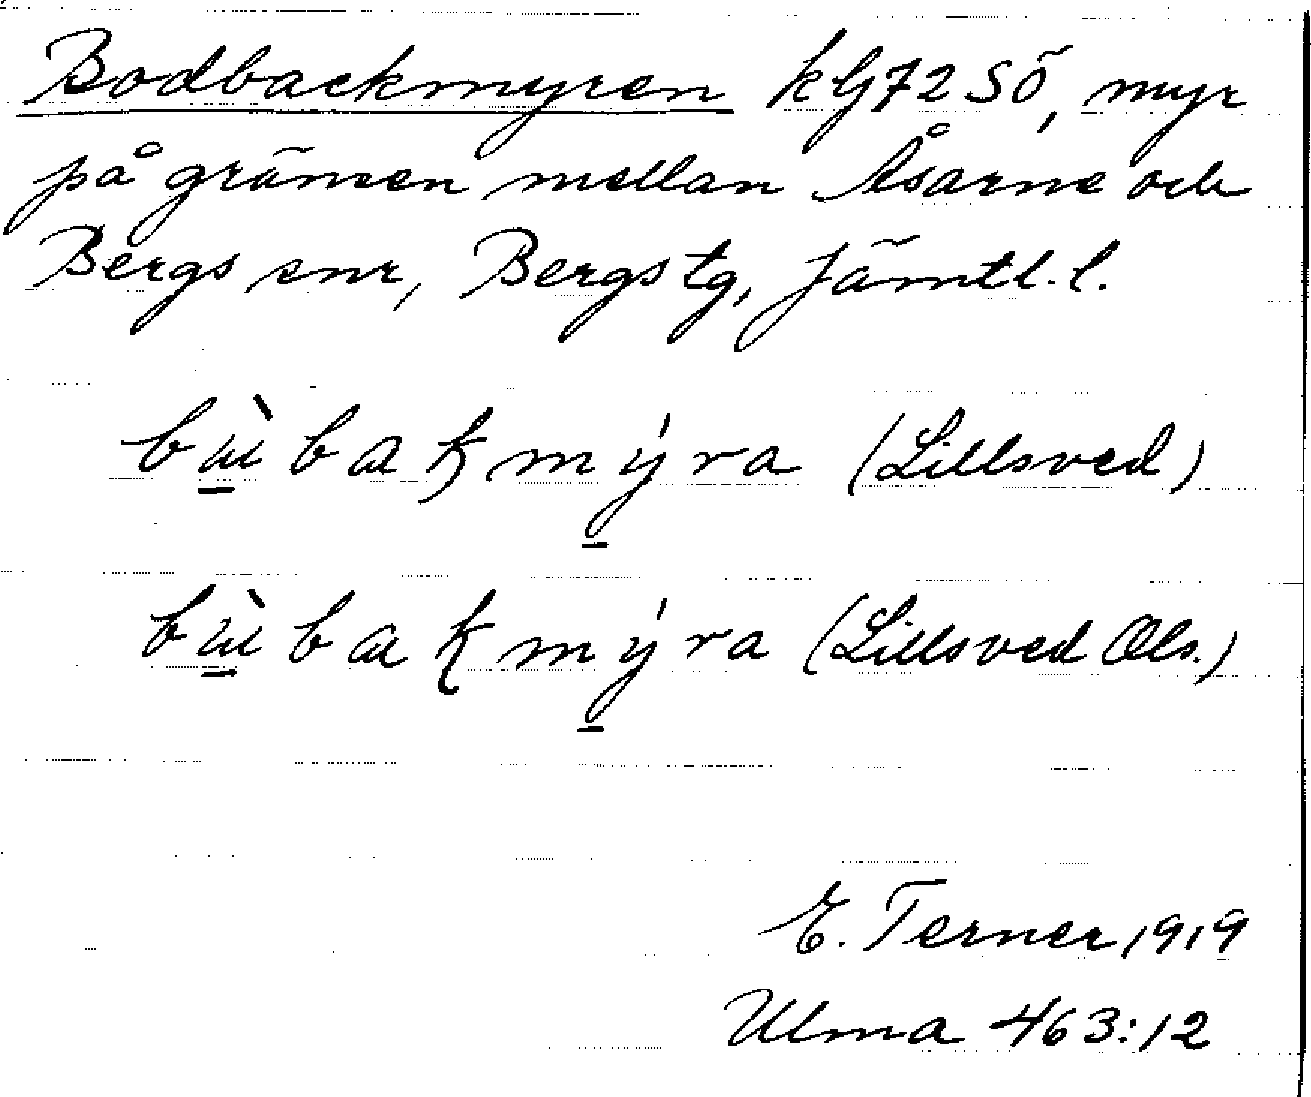 Bodbackmyren kG72SÖ, myr
på gränsen mellan Åsarne och
Bergs snr, Bergs tg, Jämtl. l.
bɯ̀bakmýra (Lillsved)
bɯ̀bakmýra (Lillsved Ols.)
E. Terner 1919
Ulma 463:12